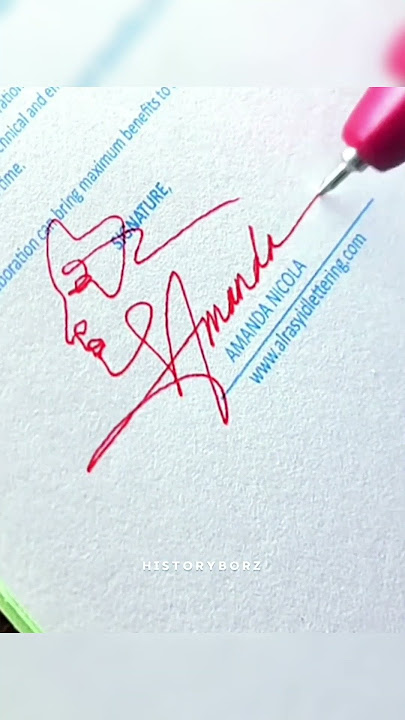 nical and e
time.
boration can bring maximum benefits to
SIGNATURE,
Amanda
AMANDA NICOLA
www.alrasyidlettering.com
HISTORYBORZ